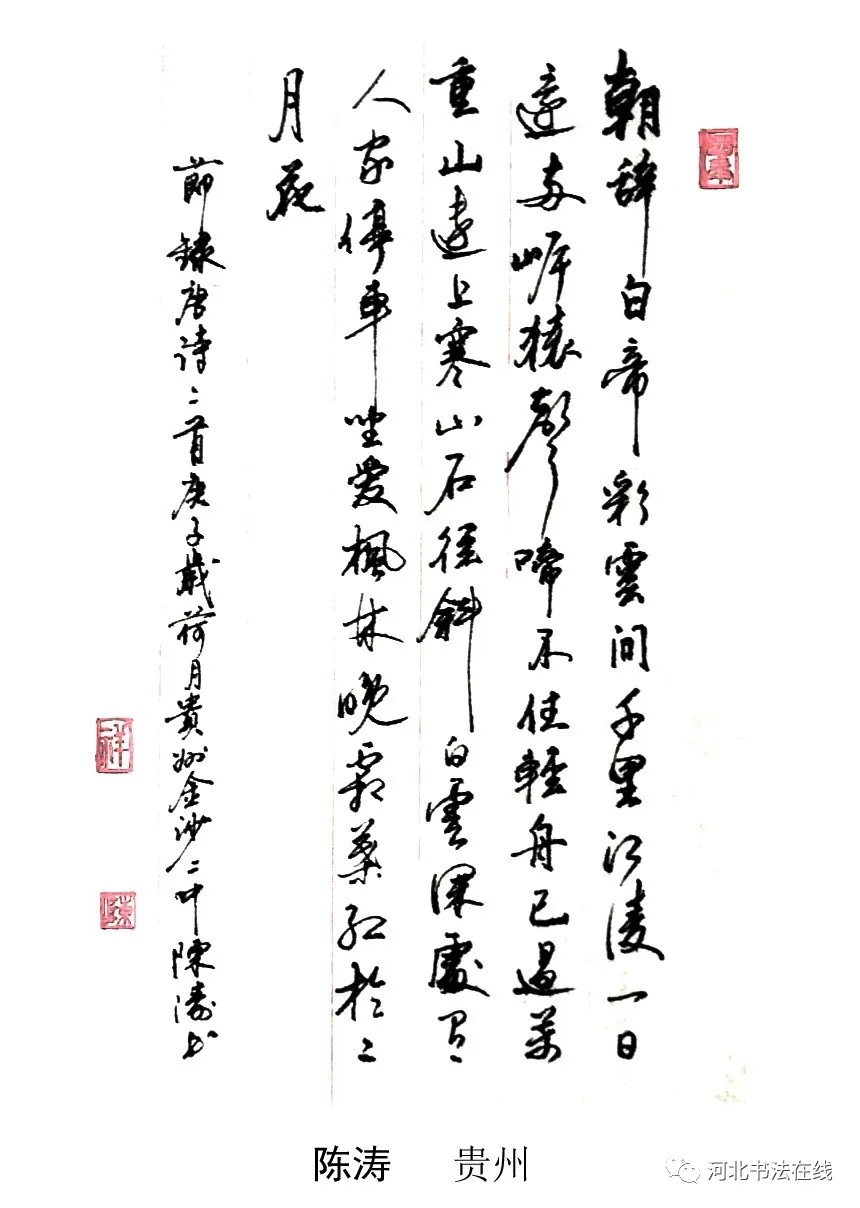 朝辞白帝彩雲间千里江陵一日
還兩岸猿聲啼不住輕舟已過萬
重山遠上寒山石徑斜白雲深處有
人家停車坐愛楓林晚霜葉紅於二
月花
節録唐詩二首庚子歲荷月貴州金沙二中陳濤书
祥
陈涛 贵州
河北书法在线